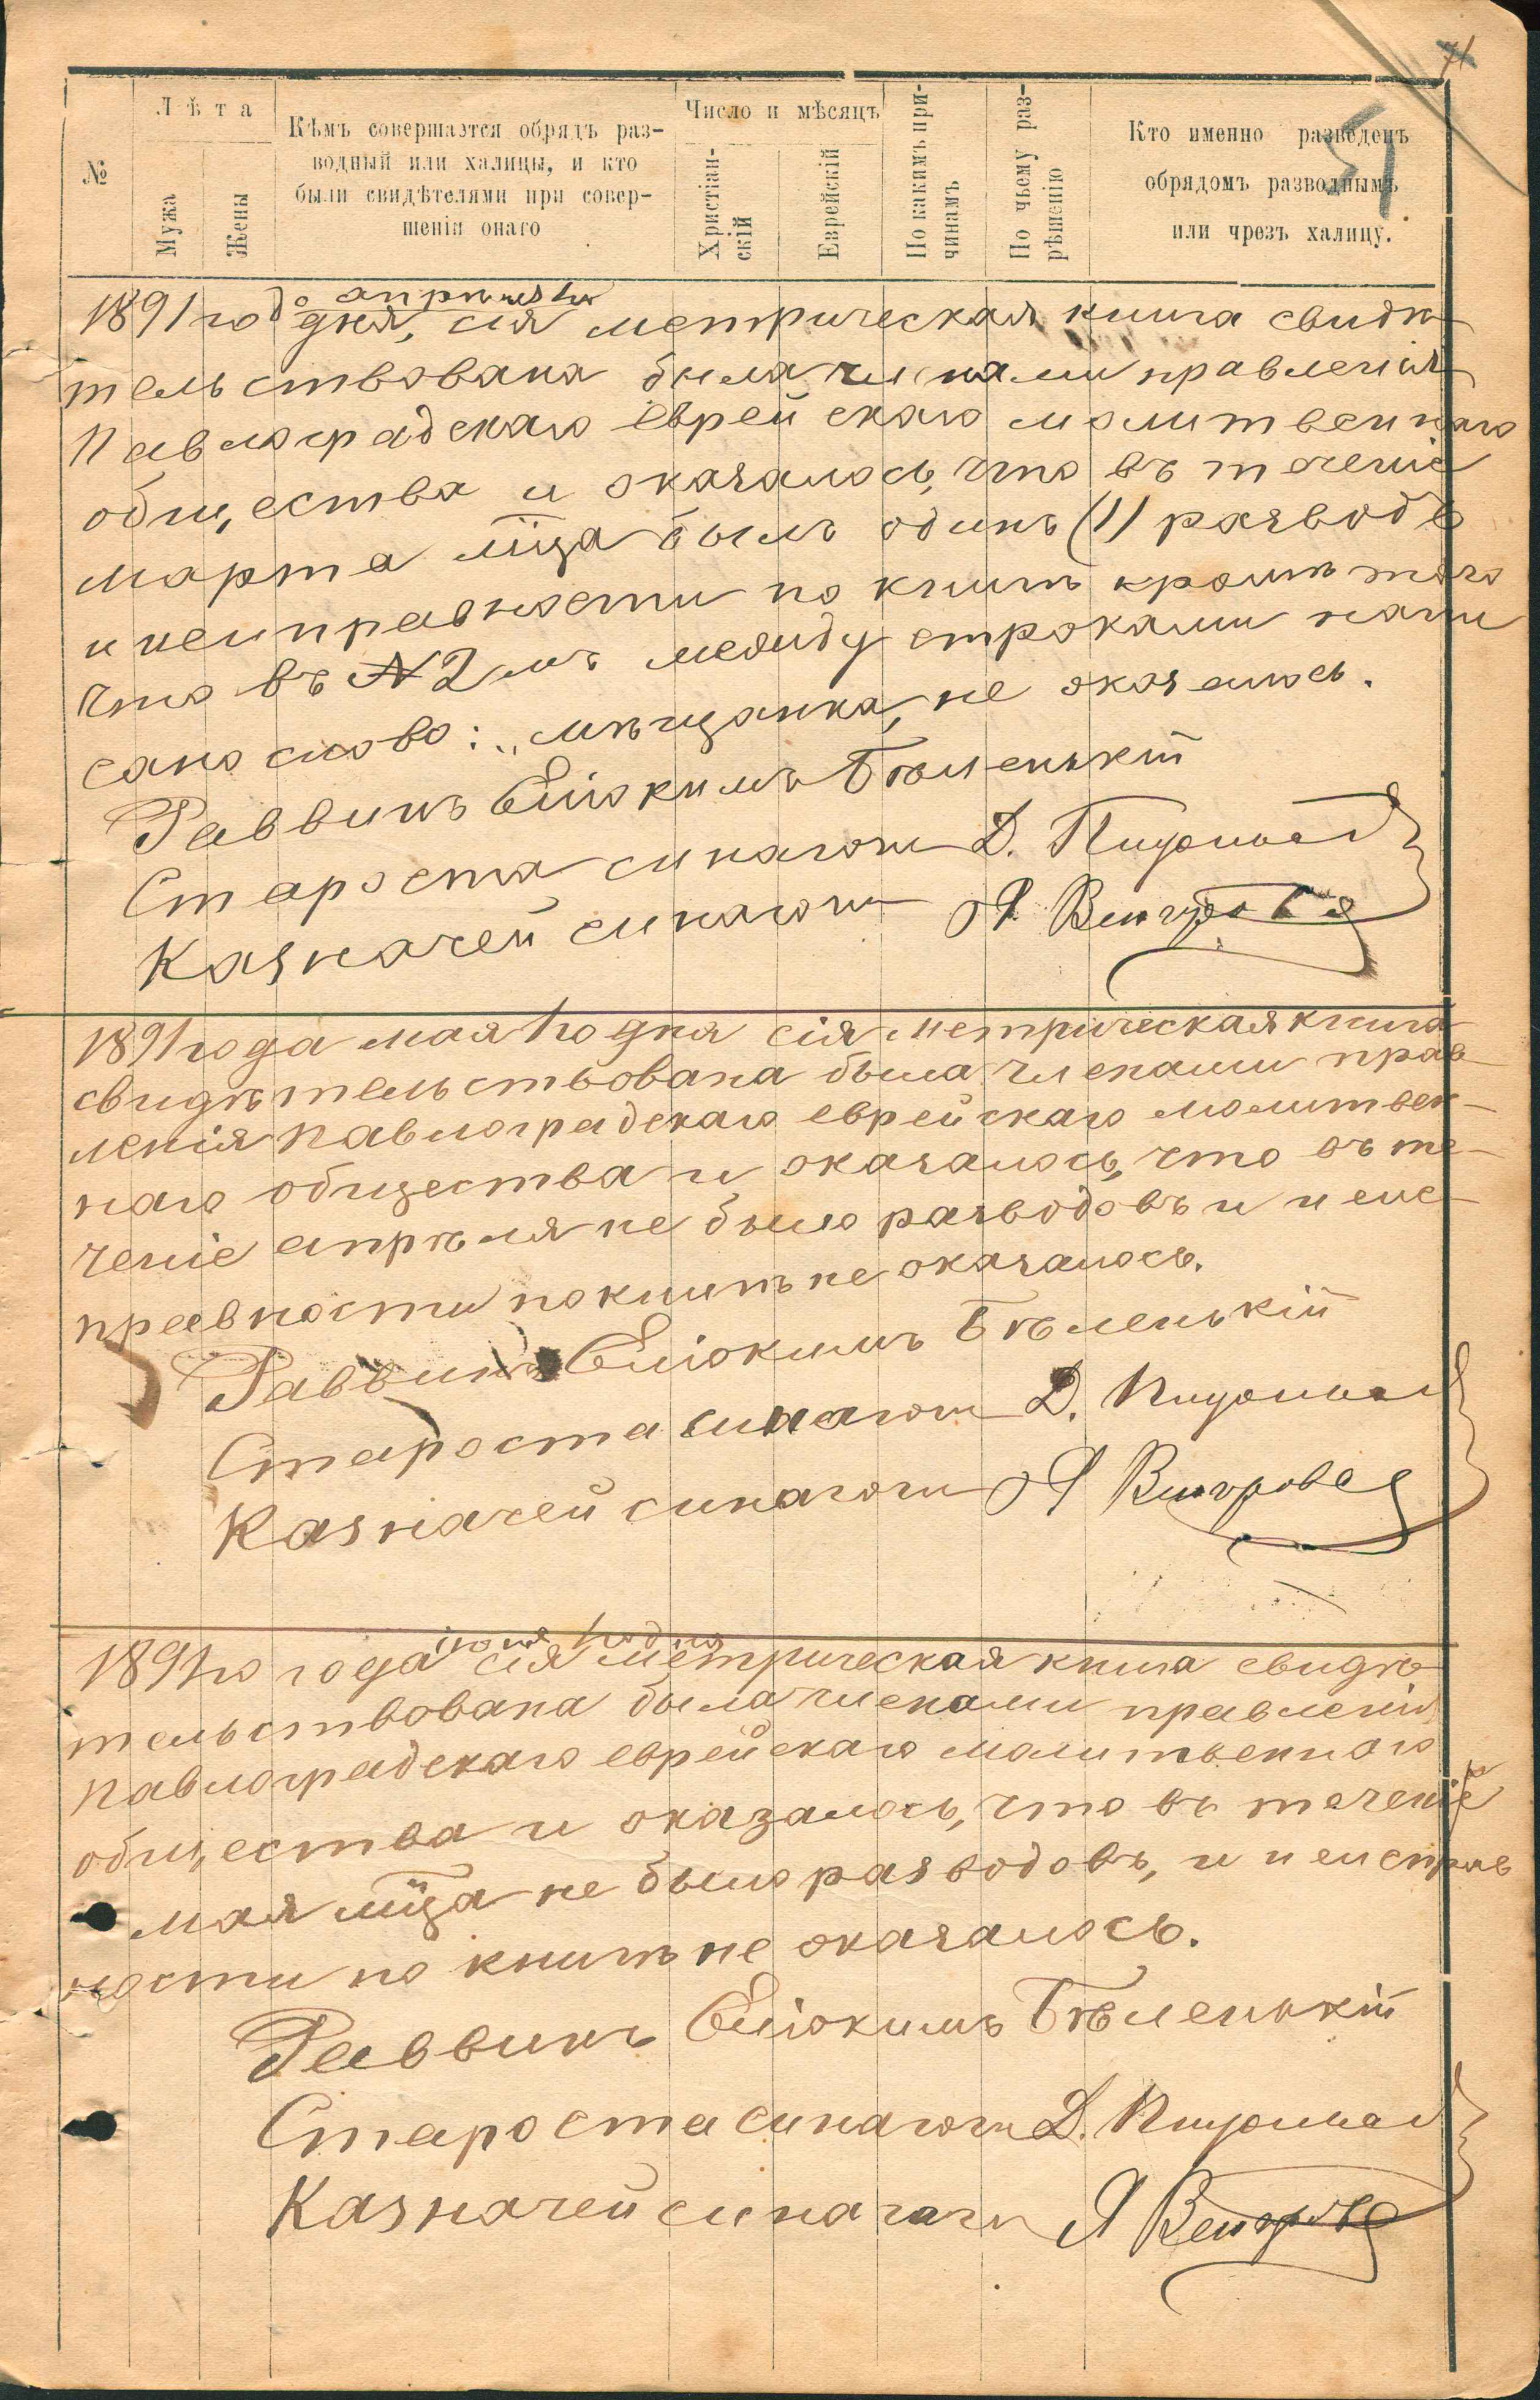 71
№
Лѣта
Мужа
Жены
Кѣмъ совершается обрядъ раз-
водный или халицы, и кто
были свидѣтелями при совер-
шеніи онаго
Число и мѣсяцъ
Христіан-
скій
Еврейскій
По какимъ при-
чинамъ
По чьему раз-
рѣшенію
Кто именно разведенъ
обрядомъ разводнымъ
или чрезъ халицу.
апрѣля 1го
1891 года дня, сія метрическая книга свидѣ
тельствована была членами правленія
Павлоградскаго еврейскаго молитвеннаго
общества и оказалось, что въ теченіе
марта мца былъ одинъ (1) разводъ
и неиправности по книгѣ кромѣ того
что въ №2мъ между строками напи
сано слово: „мѣщанка, не оказалось.
Раввинъ Еліокимъ Бѣленькій
Староста синагоги Д.
Казначей синагоги Я
1891 года мая 1го дня сія метрическая книга
свидѣтельствована была членами прав-
ленія Павлоградскаго еврейскаго молитвен-
наго общества и оказалось, что въ те-
ченіе апрѣля не было разводовъ и неис-
правности по книгѣ не оказалось.
Раввинъ Еліокимъ Бѣленькій
Староста синагоги Д.
Казначей синагоги Я
іюня 1го дня
1891го года сія метрическая книга свидѣ
тельствована была членами правленія
Павлоградскаго еврейскаго молитвеннаго
общества и оказалось, что въ теченіе
мая мца не было разводовъ, и неисправ
ности по книгѣ не оказалось.
Раввинъ Еліокимъ Бѣленькій
Староста синагоги Д.
Казначей синагоги Я